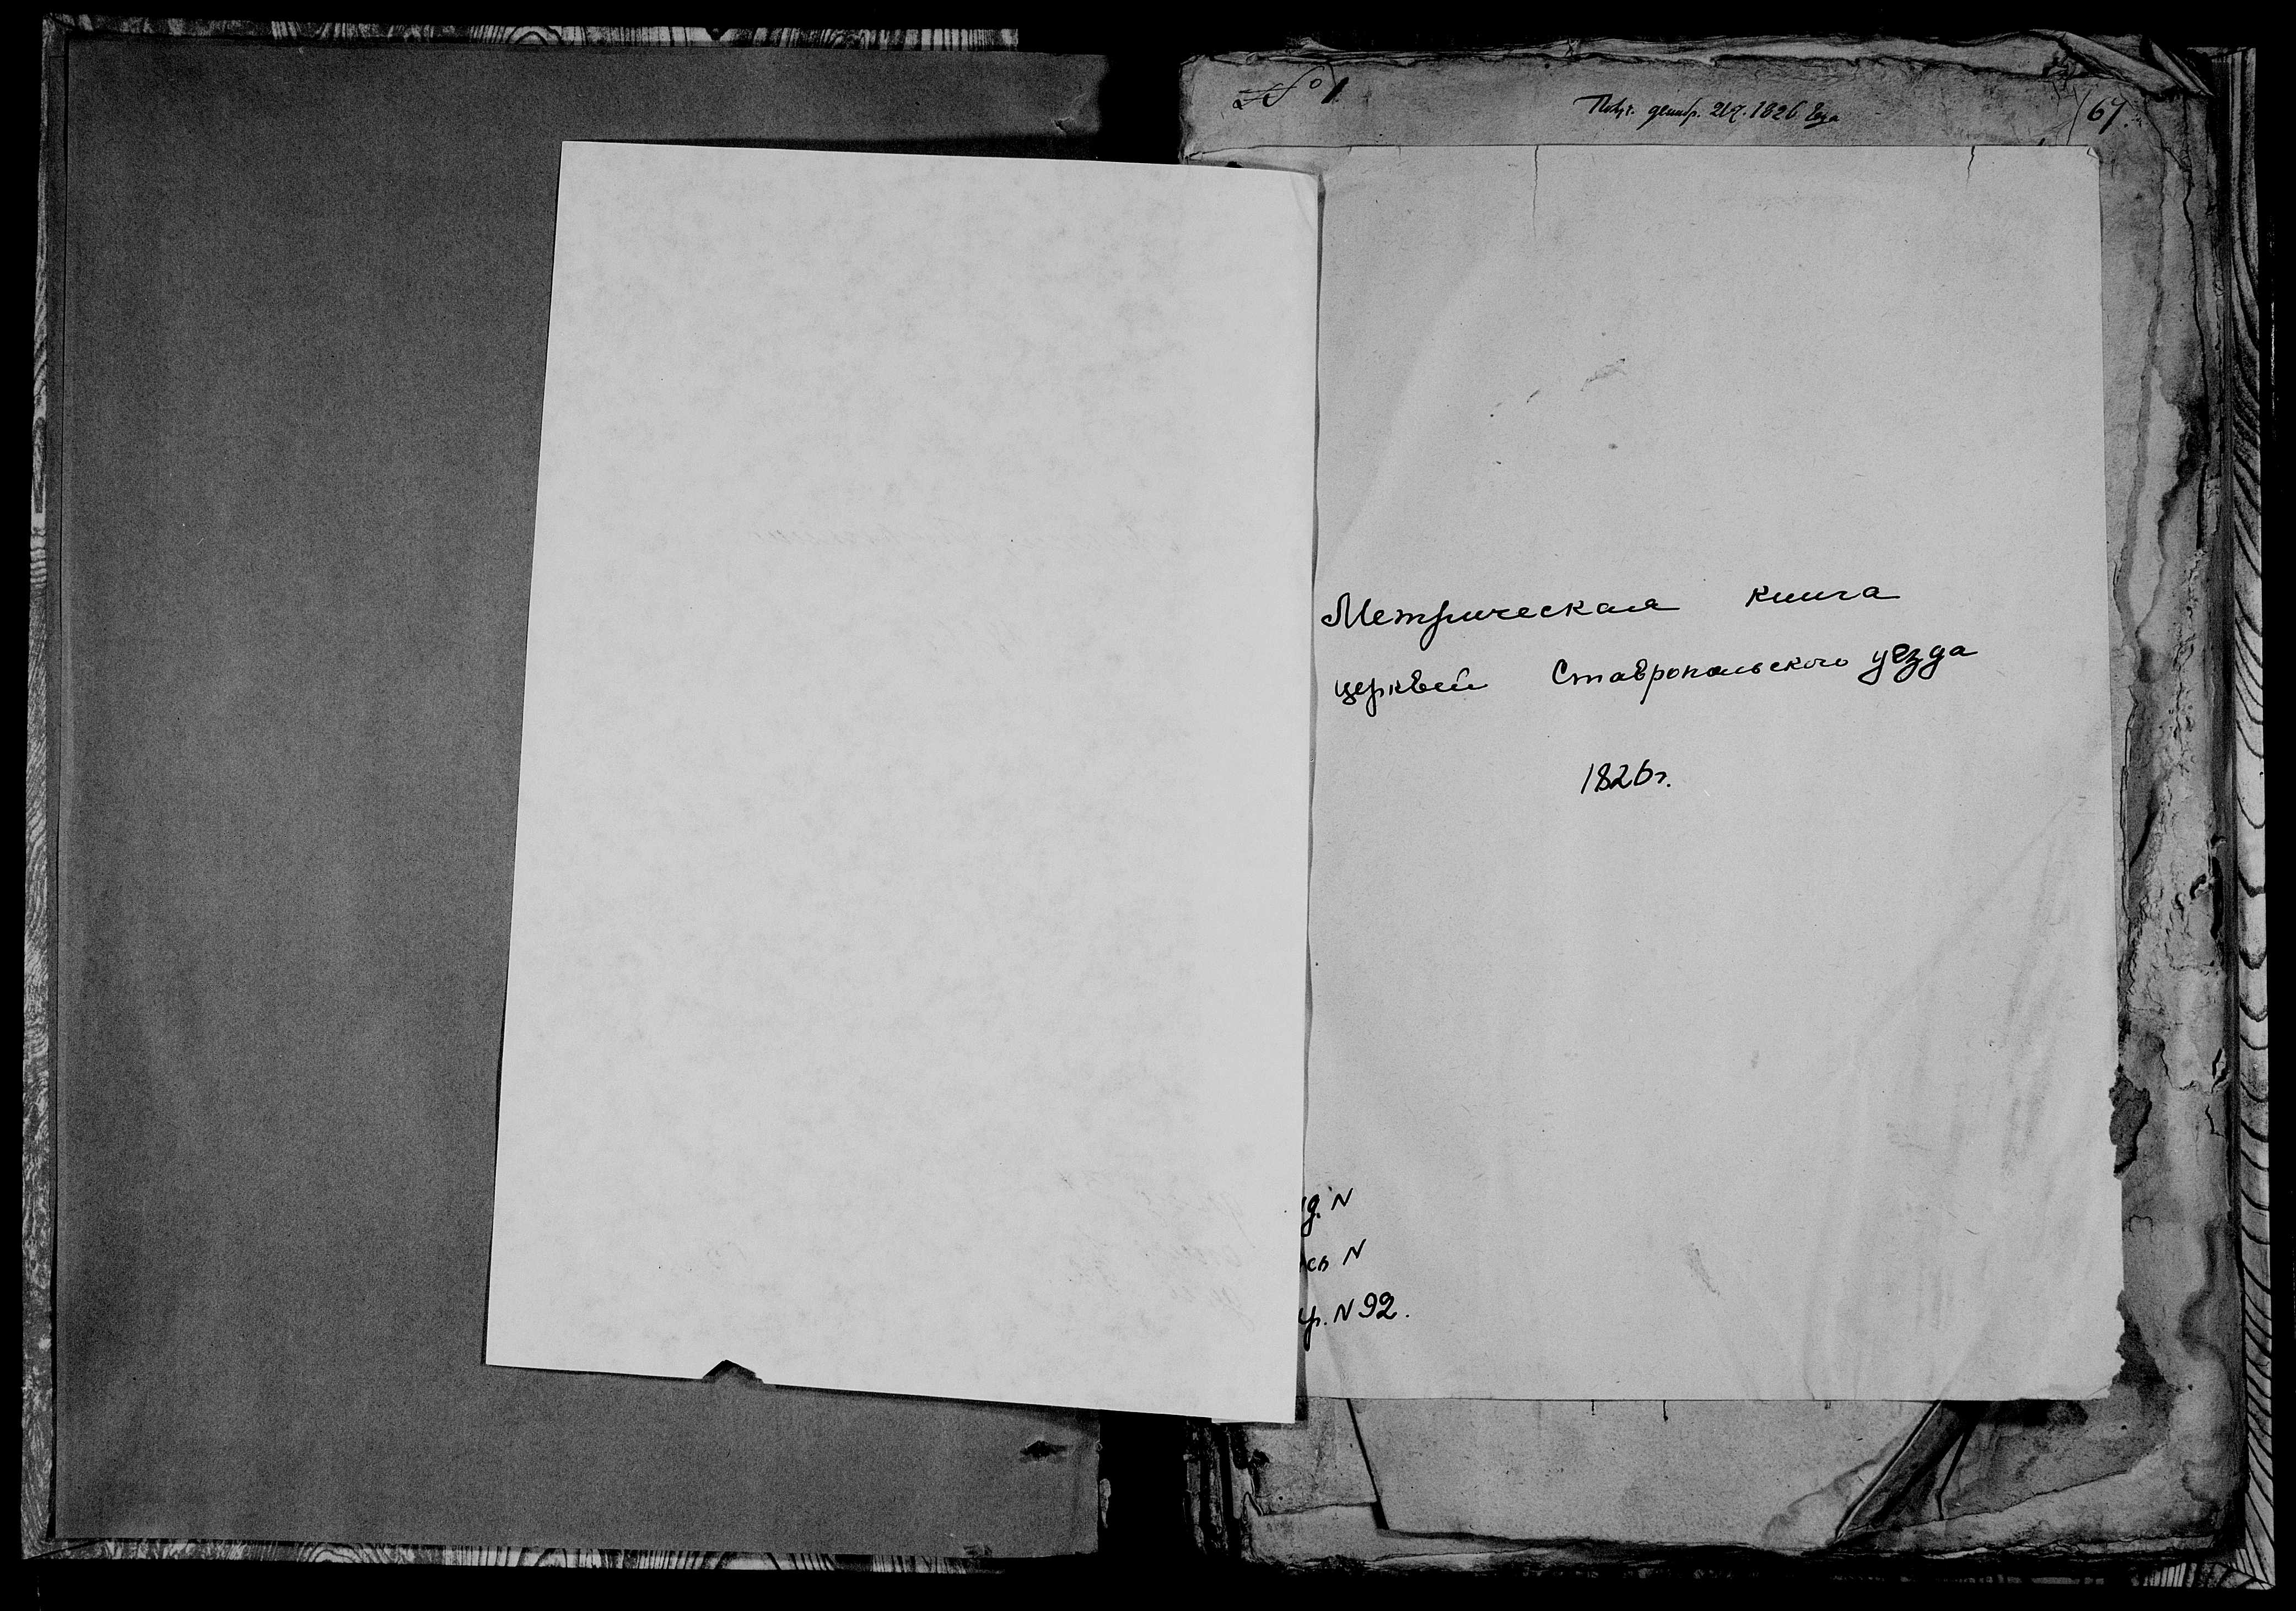 № 1
Получ. декабр. 217. 1826 года
67.
Метрическая книга
церквей Ставропольского уезда
1826 г.
д. N
сь N
р. N 92.